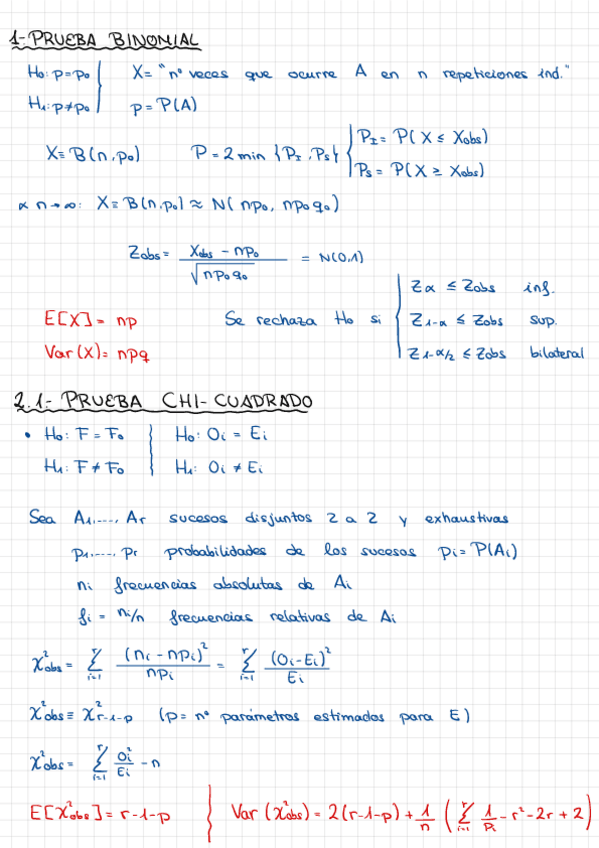 1-PRUEBA BINOMIAL
H₀: p=p₀ | X= "nº veces que ocurre A en n repeticiones ind."
H₁: p≠p₀ | p = P(A)
X≡ B(n,p₀) P = 2 min {P_I, P_S} { P_I = P(X ≤ X_obs)
P_S = P(X ≥ X_obs)
∝ n→∞: X≡B(n,p₀) ≈ N(np₀, np₀q₀)
Z_obs = (X_obs - np₀) / √(np₀q₀) = N(0,1)
E[X] = np
Var(X) = npq
Se rechaza H₀ si { Z_α ≤ Z_obs inf.
Z_{1-α} ≤ Z_obs sup.
Z_{1-α/2} ≤ Z_obs bilateral
2.1- PRUEBA CHI-CUADRADO
• H₀: F = F₀ | H₀: O_i = E_i
H₁: F ≠ F₀ | H₁: O_i ≠ E_i
Sea A₁,..., A_r sucesos disjuntos 2 a 2 y exhaustivas
p₁,..., p_r probabilidades de los sucesos p_i = P(A_i)
n_i frecuencias absolutas de A_i
f_i = n_i/n frecuencias relativas de A_i
χ²_obs = Σ_{i=1}^r (n_i - np_i)² / np_i = Σ_{i=1}^r (O_i - E_i)² / E_i
χ²_obs ≡ χ²_{r-1-p} (p = nº parámetros estimados para E)
χ²_obs = Σ_{i=1}^r O_i² / E_i - n
E[χ²_obs] = r-1-p | Var(χ²_obs) = 2(r-1-p) + 1/n (Σ_{i=1}^r 1/p_i - r² - 2r + 2)